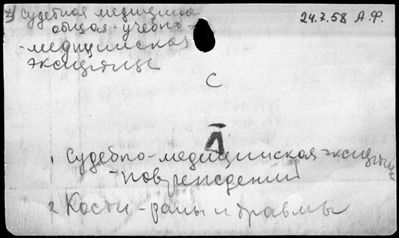 Судебная медицина
общая - учебно-
-медицинская
24.7.58 А.Ф.
С
Л
1 Судебно-медицинская
повреждений
2 Кости - раны и травмы